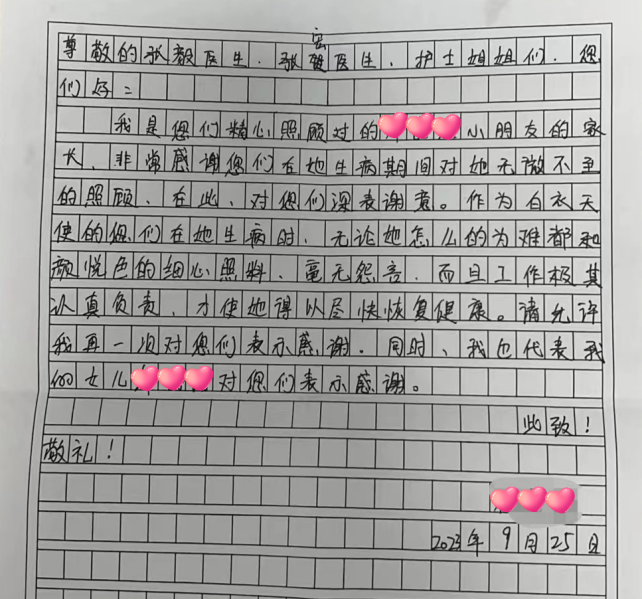 宏
尊敬的张毅医生、张医生、护士姐姐们、您
们好：
我是您们精心照顾对的小朋友的家
长、非常感谢您们在她生病期间对她无微不至
的照顾、在此、对您们深表谢意。作为白衣天
使的您们在她生病时、无论她怎么的为难都和
颜悦色的细心照料、毫无怨言、而且工作极其
认真负责、才使她得以尽快恢复健康。请允许
我再一次对您们表示感谢.同时、我也代表我
的女儿对您们表示感谢。
此致！
敬礼！
2023年9月25日